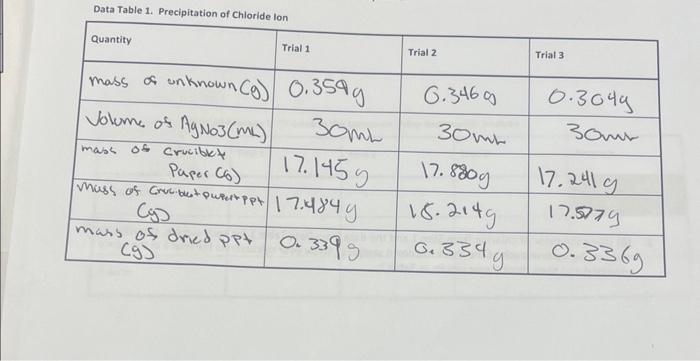 Data Table 1. Precipitation of Chloride Ion
Quantity Trial 1 Trial 2 Trial 3
mass of unknown (g) 0.359g 0.346g 0.304g
Volume of AgNO3 (mL) 30mL 30mL 30mL
mass of crucible +
Paper (g) 17.145g 17.880g 17.241g
mass of crucible + paper + ppt
(g) 17.484g 18.214g 17.577g
mass of dried ppt
(g) 0.339g 0.334g 0.336g